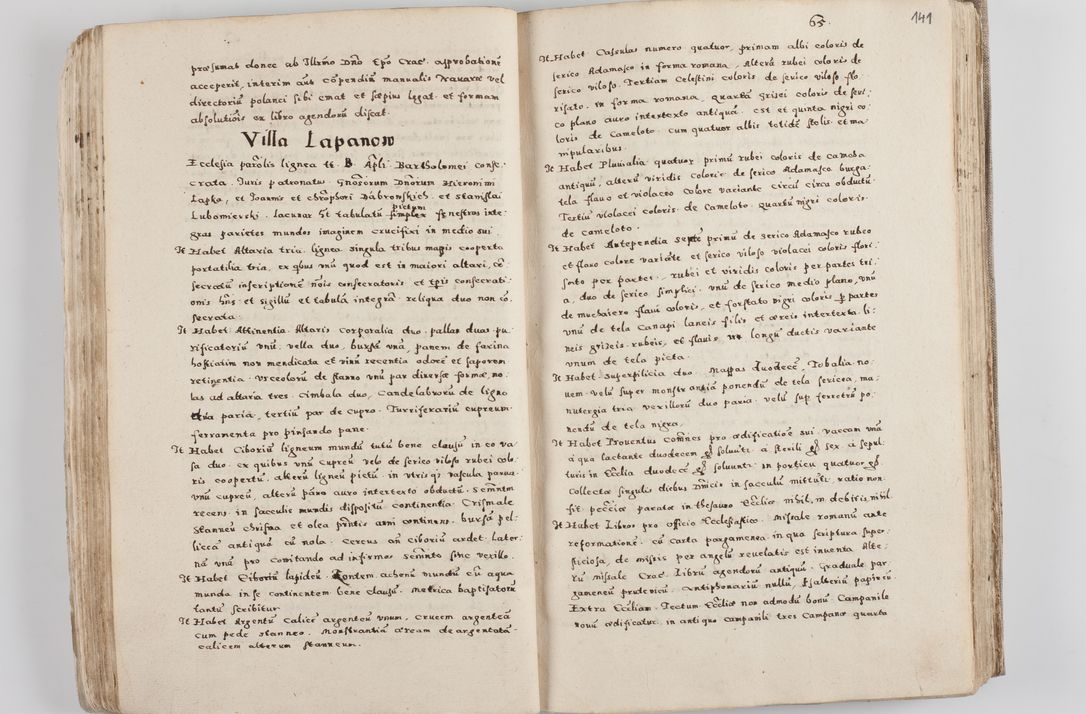 præsumat donec ab Illr̃mo Dño Epõ Crac. approbationẽ
acceperit, interim aũt cõpendiũ manualis Navarræ vel
directoriũ polanci sibi emat et sæpius legat et formam
absolutiõis ex libro agendorũ discat.
Villa Lapanow
Ecclesia parõlis lignea tt. B. Apli Bartholomei conse-
crata. Iuris patronatus Gnosorum Dñorum Hieronimi
Lapka, et Joannis et Chrophori Dabronskich et Stanislai
Lubomierski. Lacunar et tabulatũ simplex pictum fenestras inte-
gras parietes mundos imaginem crucifixi in medio sui
It Habet Altaria tria lignea singula tribus mappis cooperta
portatilia tria, ex qbus unũ quod est in maiori altari, cõ-
secratũ inscriptionẽ nõis consecratoris et tpis consecrati-
onis hñs et sigillũ et tabulã integrã reliqua duo non cõ-
secrata.
It Habet Attinentia Altaris corporalia duo. pallas duas pu-
rificatoriũ unũ: vella duo, bursã unã, panem de farina
hostiatim non mendicata et vinũ recentia odorẽ et saporem
retinentia. Urceolorũ de stanno unũ par diversæ formæ, no-
las ad altaria tres. Cimbala duo, Candelabrorũ de ligno
paria, tertiũ par de cupro. Turriferariũ cupreum.
ferramenta pro pinsando pane.
It Habet Ciboriũ ligneum mundũ tutũ bene clausũ in eo va-
sa duo ex quibus unũ cupreũ velo de serico viloso rubei colo-
ris coopertũ. alterũ ligneũ pictũ in utrisq; vascula parua
unũ cupreũ, alterũ pãno auro intertexto obductũ. Semñtm
recens in sacculis mundis dispositũ continentia. Crismale
stanneũ chrisma et olea pñtis anni continens. bursã pel-
liceã antiquã cũ nola. Cereus añ ciboriũ ardet. Later-
nã unã pro comitando ad infirmos semñto sine vexillo.
It Habet Ciboriũ lapideũ. Fontem acheni mundũ cũ aqua
munda in se continentem bene clausũ. Metrica baptisatorũ
tantũ scribitur
It Habet Argentũ Calicẽ argenteũ unum, Crucem argenteã
cum pede stanneo. Monstrantiã æream deargentatã
calicem alterum stanneum.
65.
141
It Habet Casulas numero quatuor, primam albi coloris de
serico Adamasco in forma romana. Alterã rubei coloris de
serico viloso. Tertiam Celestini coloris de serico viloso flo-
risato in forma romana, quartã grisei coloris de seri-
co plano auro intertexto antiquã. est et quinta nigri co-
loris de Cameloto. cum quatuor albis totidẽ stolis et ma-
nipularibus.
It Habet Pluvialia quatuor primũ rubei coloris de camoba
antiquũ, alterũ viridis coloris de serico Adamasco burga
tela flauo et violaceo colore variante circũ circa obductũ
Tertiũ violacei coloris de Cameloto. quartũ nigri coloris
de cameloto.
It Habet Antependia septẽ primũ de serico Adamasco rubeo
et flavo colore variãte et serico viloso violacei coloris flori-
sato per partes. rubei et viridis coloris per partes tri-
a, duo de serico simplici. unũ de serico medio plano, unũ
de muchaiero flavi coloris, et forstato nigri coloris p partes
unũ de tela Canapi laneis filis et æreis intertexta li-
neis griseis. rubeis, et flavis in longũ ductis variante
unum de tela picta.
It Habet Superpilicia duo. Mappas duodecẽ, Tobalia no-
uem. velũ super monstrantiã ponendũ de tela sericea, ma-
nutergia tria. vexillorũ duo paria. velũ sup ferretrũ po-
nendũ de tela nigra.
It Habet Proventus Com̃nes pro ædificatiõe sui. vaccam unã
a qua lactante duodecem gr solvunt. a sterili gr sex. a sepul-
turis in Ecclia duodecẽ gr solvunt. in porticu quatuor gr.
Collectæ singulis diebus Dñicis in sacculũ mittũtr. ratio non
fit. pecciæ paratæ in thesauro Eccliæ nihil. in debitis nihil.
It Habet Libros pro officio Ecclesiastico. Missale romanũ ante
reformationẽ. cũ Carta pargamenea in qua scriptura super-
sticiosa, de missis per angelũ revelatis est inventa. Alte-
rũ missale Crac. Librũ agendorũ antiquũ. Graduale par-
gameneũ. Antiphonariũ nullũ, Psalteriũ papireũ.
Extra Eccliam. Tectum Eccliæ non admodũ bonũ. Campanile
novũ ædificatur. in antiquo campanili tres Campanæ quarta